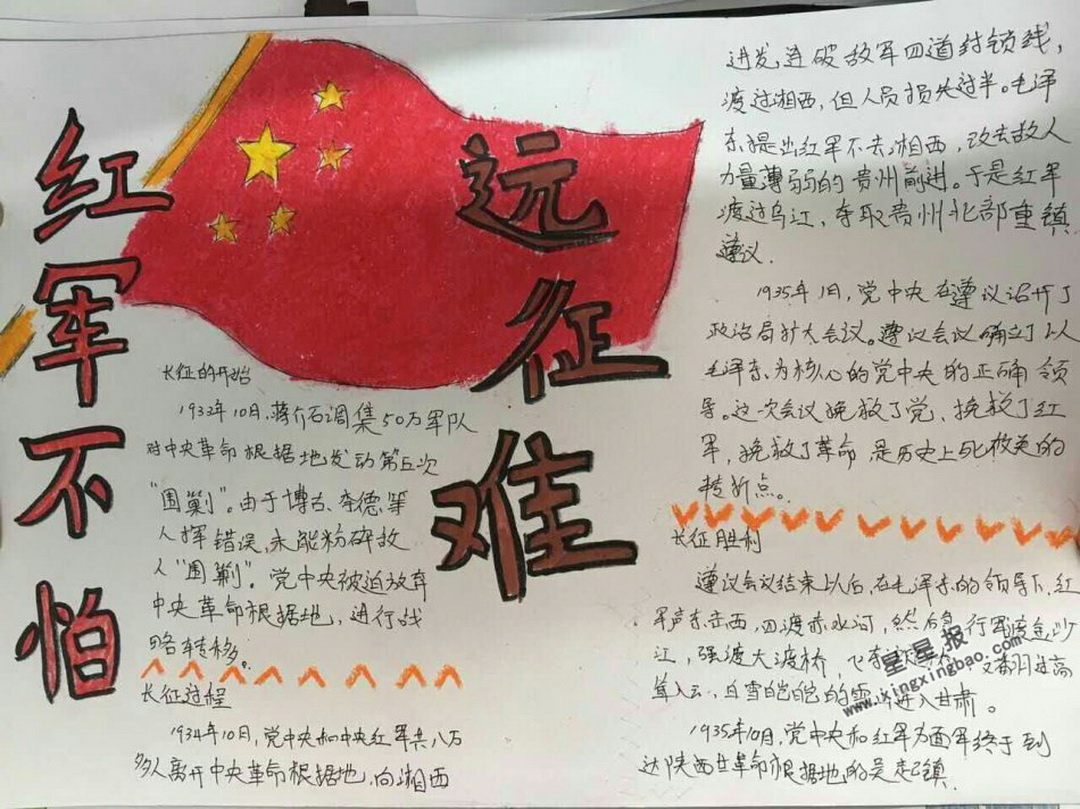 红军不怕
远征难
长征的开始
1933年10月,蒋介石调集50万军队
对中央革命根据地发动第五次
“围剿”。由于博古、李德等
人挥错误,未能粉碎敌
人“围剿”。党中央被迫放弃
中央革命根据地,进行战
略转移。
长征过程
1934年10月,党中央和中央红军共八万
多人离开中央革命根据地,向湘西
进发,连破敌军四道封锁线,
渡过湘西,但人员损失过半。毛泽
东提出红军不去湘西,改去敌人
力量薄弱的贵州前进。于是红军
渡过乌江,夺取贵州北部重镇
遵义.
1935年1月,党中央在遵议召开了
政治局扩大会议。遵议会议确立了以
毛泽东为核心的党中央的正确领
导。这一次会议挽救了党、挽救了红
军,挽救了革命,是历史上死攸关的
转折点。
长征胜利
遵议会议结束以后,在毛泽东的领导下,红
军声东击西,四渡赤水河,然后 行军渡金沙
江,强渡大渡桥,飞夺 又翻过高
耸入云,白雪皑皑的雪 进入甘肃。
1935年10月,党中央和红军方面军终于到
达陕西 革命根据地的吴起镇.
星星报
www.ixingxingbao.com